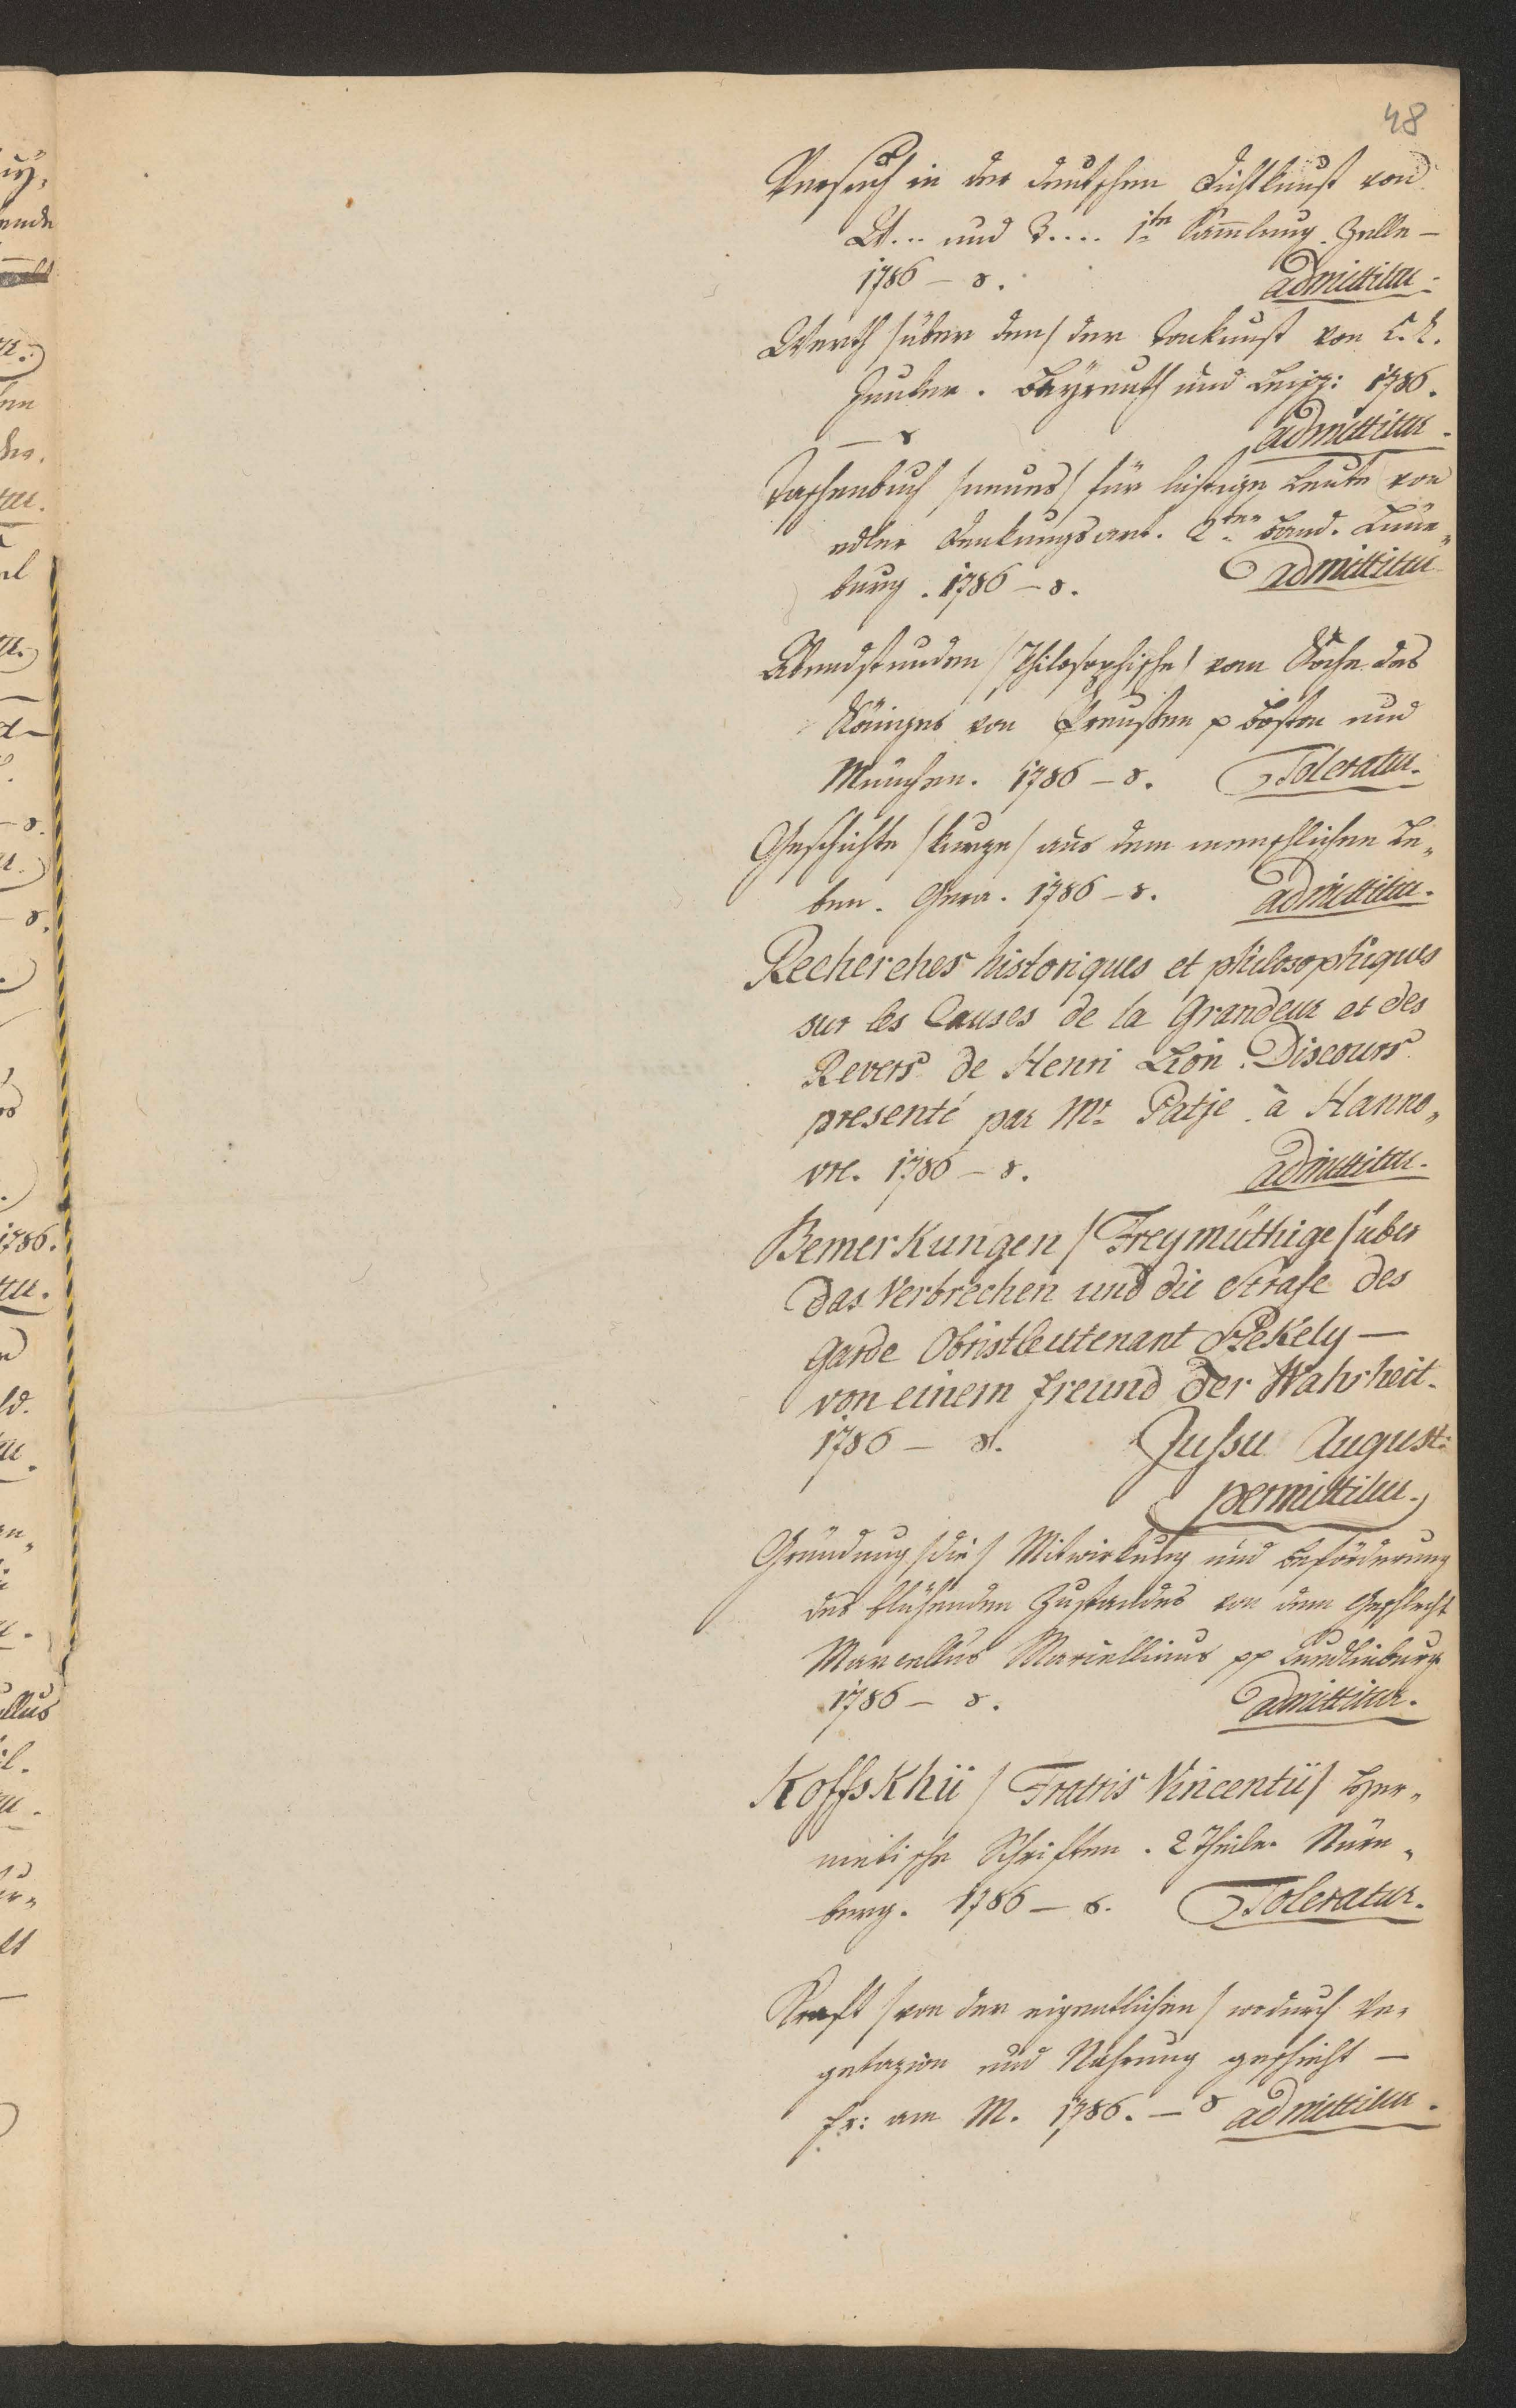 48
Versuch in der deutschen Dichtkunst von
W... und B.... 1te Sammlung. Zelle –
1786 – 8. admittitur.
Werth /über den/ der Tonkunst von C. L.
Junker. Bayreuth und Leipz: 1786.
– 8 admittitur.
Taschenbuch /neues/ für lustige Leute von
edler Denkungsart. 2ter Band. Lüne„
burg. 1786 – 8. admittitur
Abendstunden /Philosophische/ vom Koche des
Königes von Preußen p Boston und
München. 1786 – 8. Toleratur.
Geschichte /kurze/ aus dem menschlichen Le„
ben. Gera. 1786 – 8. admittitur.
Recherches historiques et philosophiques
sur les Causes de la Grandeur et des
Revers de Henri Lion. Discours
presenté par Mr. Patje. à Hanno„
vre. 1786 – 8. admittitur.
Bemerkungen /Freymüthige/ über
das Verbrechen und die Strafe des
Garde Obristleutenant Szekely –
von einem Freund der Wahrheit.
1786 – 8. Jussu August:
permittitur.
Gründung /die/ Mitwirkung und Beförderung
des blühenden Zustandes von dem Geschlecht
Marcellus Marcellinus pp Quedlinburg
1786 – 8. admittitur.
Koffskhii /Fratris Vincentii/ Her„
metische Schriften. 2 Theile. Nürn„
berg. 1786 – 8. Toleratur.
Kraft /von der eigentlichen/ wodurch Ve„
getazion und Nahrung geschieht –
Fr: am M. 1786. – 8 admittitur.